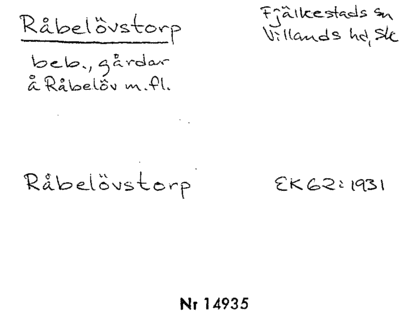 Råbelövstorp
Fjälkestads sn
Villands hd, Sk
beb., gårdar
å Råbelöv m.fl.
Råbelövstorp
EK62:1931
Nr 14935